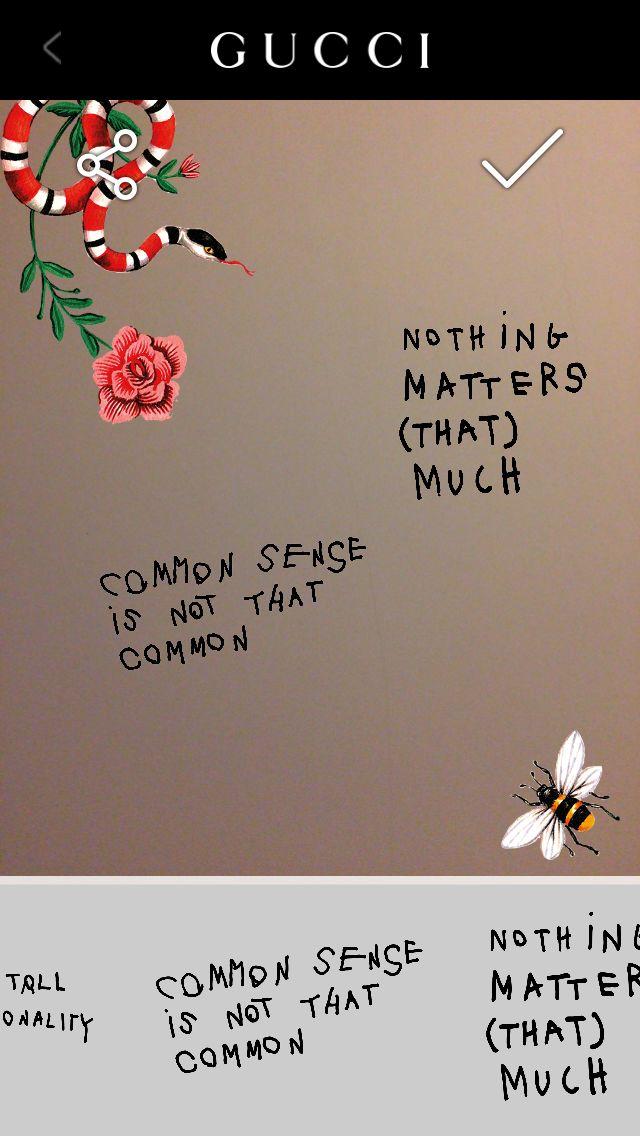 GUCCI
NOTHING
MATTERS
(THAT)
MUCH
COMMON SENSE
IS NOT THAT
COMMON
TALL
ONALITY
COMMON SENSE
IS NOT THAT
COMMON
NOTHING
MATTER
(THAT)
MUCH